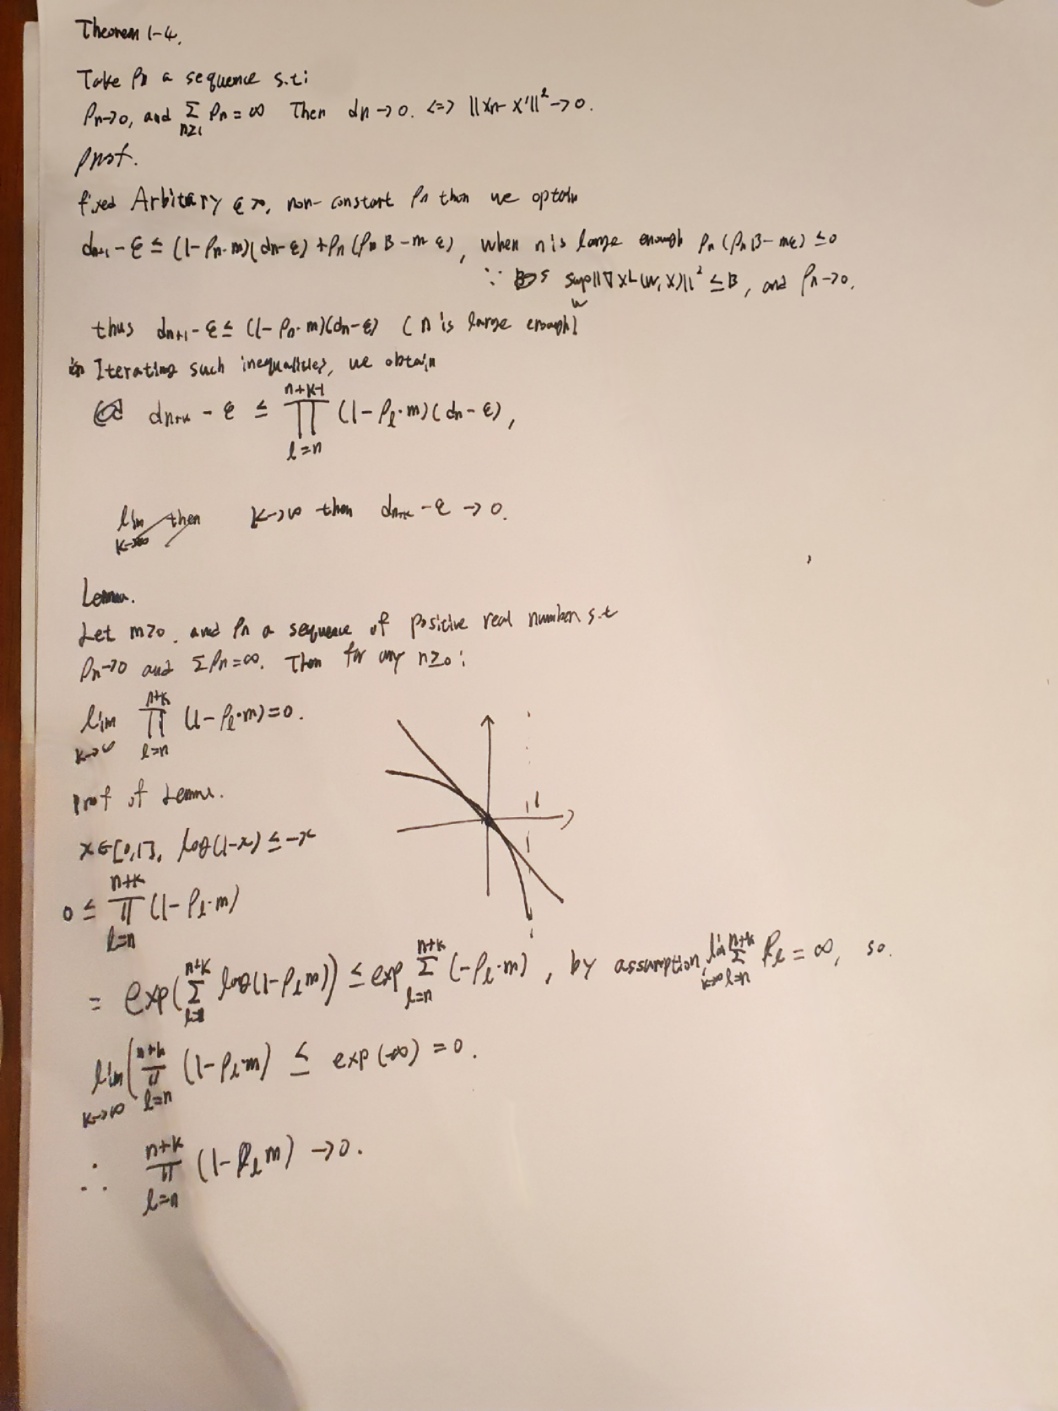 Theorem 1-4.
Take ρn a sequence s.t:
ρn→0, and Σ_{n≥1} ρn = ∞ Then dn → 0. <=> ||xn - x'||² → 0.
proof.
fixed Arbitary ε>0, non-constant ρn then we optain
dn+1 - ε ≤ (1-ρn·m)(dn-ε) + ρn(ρn B - m ε), when n is large enough ρn(ρn B - mε) ≤ 0
∵ sup_w ||∇xL(w,x)||² ≤ B, and ρn→0.
thus dn+1 - ε ≤ (1-ρn·m)(dn-ε) (n is large enough)
Iterating such inequalities, we obtain
dn+k - ε ≤ ∏_{l=n}^{n+k-1} (1-ρl·m)(dn-ε),
lim_{k→∞} then k→∞ then dn+k - ε → 0.
Lemma.
Let m>0, and ρn a sequence of positive real number s.t
ρn→0 and Σρn=∞. Then for any n≥0:
lim_{k→∞} ∏_{l=n}^{n+k} (1-ρl·m)=0.
1
Prof of Lemma.
x∈[0,1], log(1-x) ≤ -x
0 ≤ ∏_{l=n}^{n+k} (1-ρl·m)
= exp(Σ_{l=n}^{n+k} log(1-ρl m)) ≤ exp Σ_{l=n}^{n+k} (-ρl·m), by assumption, lim_{k→∞} Σ_{l=n}^{n+k} ρl = ∞, so.
lim_{k→∞} (∏_{l=n}^{n+k} (1-ρl·m) ≤ exp(-∞) = 0.
∴ ∏_{l=n}^{n+k} (1-ρl m) → 0.